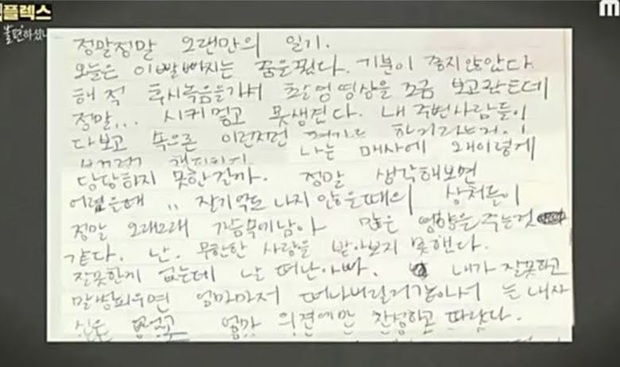 플렉스
불편하십니
M
정말정말 오랜만의 일기.
오늘은 이빨빠지는 꿈을꿨다. 기분이 좋지않았다
해적 후시녹음을가서 촬영영상을 조금 보고왔는데
정말... 시커멓고 못생겼다. 내 주변사람들이
다보고 속으론 이런저런 하기라는거.
나는 매사에 왜이렇게
당당하지 못한걸까. 정말 생각해보면
어렸을때 .. 잘기억도 나지 않을때의 상처들이
정말 오래오래 가슴속에남아 많은 영향을주는것
같다. 난. 무한한 사랑을 받아보지 못했다.
잘못한게 없는데 날 떠난아빠. 내가 잘못하고
말썽피우면 엄마마저 떠나버릴거같아서 는 내자
신은 없고 엄마 의견에만 찬성하고 따랐다.